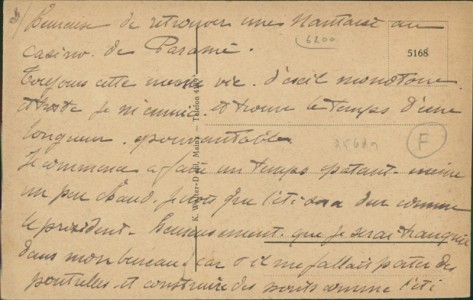 3) Heureux de retrouver une Nantaise au
casino de Paramé.
6200
5168
Toujours cette même vie d'exil monotone
et triste je m'ennuie et trouve le temps d'une
longueur épouvantable.
F
Je commence a faire un temps épatant même
un peu chaud. Je crois que l'été sera dur comme
le président. Heureusement que je serai tranquille
dans mon bureau car s'il me fallait porter des
poutrelles et construire des ponts comme l'été